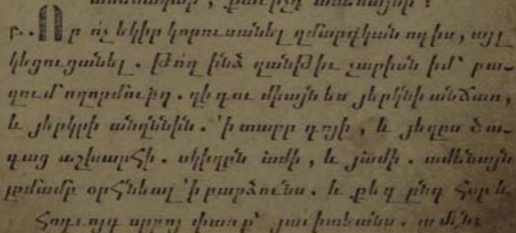 բ. Որ ոչ եկիր կորուսանել զմարդկան ոգիս, այլ
կեցուցանել. թող ինձ զանթիւ չարիսն իմ՝ բա-
զում ողորմութբ. զի դու միայն ես յերկինս անճառ,
և յերկրի անքննին. ՛ի տարր գոյի, և յեզրս ծա-
գաց աշխարհի. սկիզբն
ամենայն
լրմամբ օրհնեալ ՛ի բարձունս. և քեզ ընդ հօր և
հոգւոյդ սրբոյ փառք յաւիտեանս. ամէն։